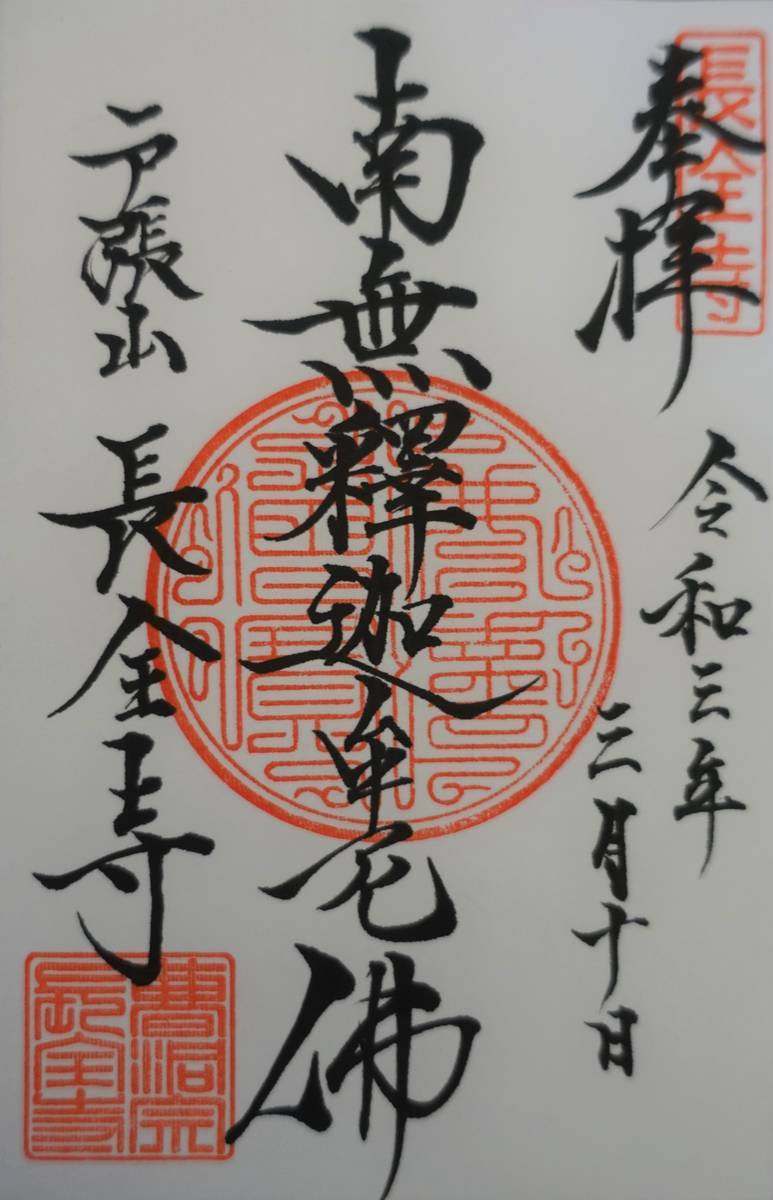 長全寺
奉拝
令和三年
三月十日
南無釋迦牟尼佛
戸張山 長全寺
曹洞宗
長全寺